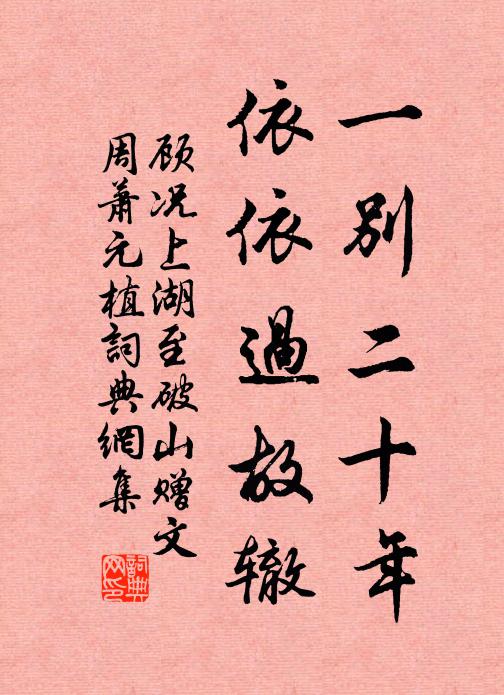 一别二十年
依依過故辙
顾况上湖至破山赠文
周萧元植詞典網集
詞典网印